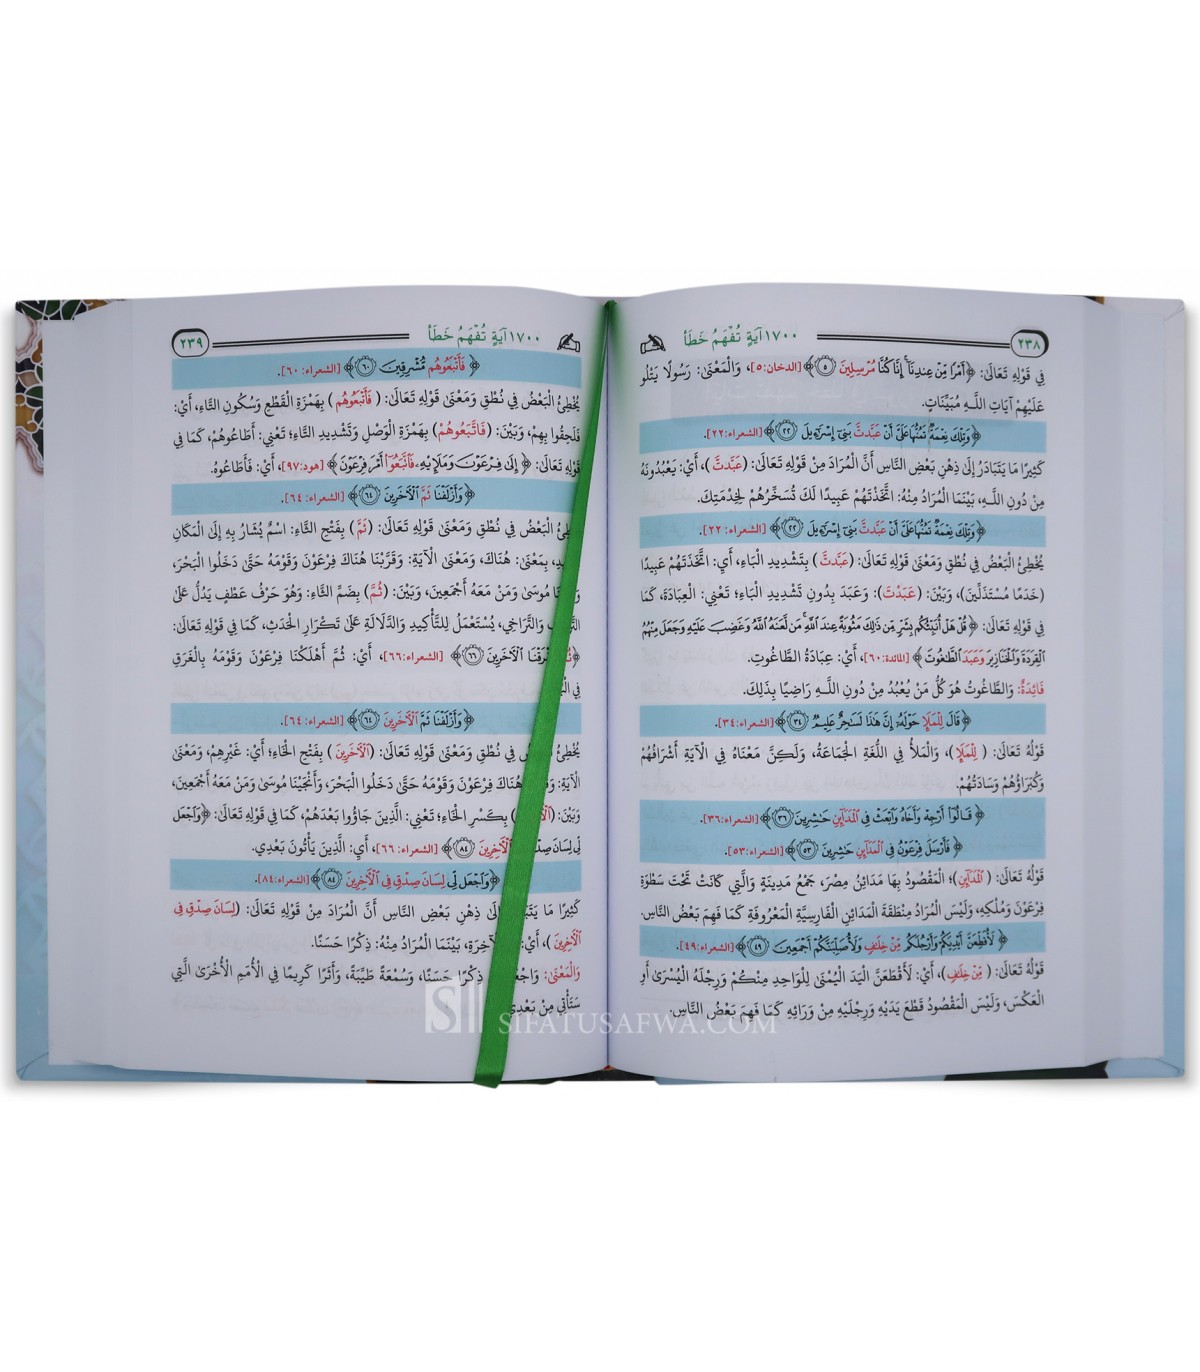 ٢٣٨
١٧٠٠ آيَةٍ تُفْهَمُ خَطَأً
فِي قَوْلِهِ تَعَالَى: ﴿أَمْرًا مِّنْ عِندِنَا إِنَّا كُنَّا مُرْسِلِينَ ۝٥﴾ [الدخان:٥]، وَالْمَعْنَى: رَسُولًا يَتْلُو
عَلَيْهِمْ آيَاتِ اللَّهِ مُبَيِّنَاتٍ.
﴿وَتِلْكَ نِعْمَةٌ تَمُنُّهَا عَلَىَّ أَنْ عَبَّدتَّ بَنِىٓ إِسْرَٰٓءِيلَ ۝٢٢﴾ [الشعراء:٢٢].
كَثِيرًا مَا يَتَبَادَرُ إِلَى ذِهْنِ بَعْضِ النَّاسِ أَنَّ الْمُرَادَ مِنْ قَوْلِهِ تَعَالَى: (عَبَّدتَّ)، أَيْ: يَعْبُدُونَهُ
مِنْ دُونِ اللَّهِ، بَيْنَمَا الْمُرَادُ مِنْهُ: اتَّخَذْتَهُمْ عَبِيدًا لَكَ تُسَخِّرُهُمْ لِخِدْمَتِكَ.
﴿وَتِلْكَ نِعْمَةٌ تَمُنُّهَا عَلَىَّ أَنْ عَبَّدتَّ بَنِىٓ إِسْرَٰٓءِيلَ ۝٢٢﴾ [الشعراء: ٢٢].
يُخْطِئُ الْبَعْضُ فِي نُطْقِ وَمَعْنَى قَوْلِهِ تَعَالَى: (عَبَّدتَّ) بِتَشْدِيدِ الْبَاءِ، أَيْ: اتَّخَذتَهُمْ عَبِيدًا
(خَدَمًا مُسْتَذَلِّينَ)، وَبَيْنَ: (عَبَدْتَ): وَعَبَدَ بِدُونِ تَشْدِيدِ الْبَاءِ؛ تَعْنِي: الْعِبَادَةَ، كَمَا
فِي قَوْلِهِ تَعَالَى: ﴿قُلْ هَلْ أُنَبِّئُكُم بِشَرٍّ مِّن ذَٰلِكَ مَثُوبَةً عِندَ اللَّهِ مَن لَّعَنَهُ اللَّهُ وَغَضِبَ عَلَيْهِ وَجَعَلَ مِنْهُمُ
الْقِرَدَةَ وَالْخَنَازِيرَ وَعَبَدَ الطَّاغُوتَ﴾ [المائدة:٦٠]، أَيْ: عِبَادَةُ الطَّاغُوتِ.
فَائِدَةٌ: وَالطَّاغُوتُ هُوَ كُلُّ مَنْ يُعْبَدُ مِنْ دُونِ اللَّهِ رَاضِيًا بِذَلِكَ.
﴿قَالَ لِلْمَلَإِ حَوْلَهُۥٓ إِنَّ هَٰذَا لَسَٰحِرٌ عَلِيمٌ ۝٣٤﴾ [الشعراء:٣٤].
قَوْلُهُ تَعَالَى: (لِلْمَلَإِ)، وَالْمَلَأُ فِي اللُّغَةِ الْجَمَاعَةُ، وَلَكِنَّ مَعْنَاهُ فِي الْآيَةِ أَشْرَافُهُمْ
وَكُبَرَاؤُهُمْ وَسَادَتُهُمْ.
﴿قَالُوٓا أَرْجِهْ وَأَخَاهُ وَابْعَثْ فِى الْمَدَآئِنِ حَٰشِرِينَ ۝٣٦﴾ [الشعراء:٣٦].
﴿فَأَرْسَلَ فِرْعَوْنُ فِى الْمَدَآئِنِ حَٰشِرِينَ ۝٥٣﴾ [الشعراء:٥٣].
قَوْلُهُ تَعَالَى: (الْمَدَآئِنِ)؛ الْمَقْصُودُ بِهَا مَدَائِنُ مِصْرَ، جَمْعُ مَدِينَةٍ وَالَّتِي كَانَتْ تَحْتَ سَطْوَةِ
فِرْعَوْنَ وَمُلْكِهِ، وَلَيْسَ الْمُرَادُ مِنْطَقَةَ الْمَدَائِنِ الْفَارِسِيَّةِ الْمَعْرُوفَةِ كَمَا فَهِمَ بَعْضُ النَّاسِ.
﴿لَأُقَطِّعَنَّ أَيْدِيَكُمْ وَأَرْجُلَكُم مِّنْ خِلَٰفٍ وَلَأُصَلِّبَنَّكُمْ أَجْمَعِينَ ۝٤٩﴾ [الشعراء:٤٩].
قَوْلُهُ تَعَالَى: (مِّنْ خِلَٰفٍ)، أَيْ: لَأَقْطَعَنَّ الْيَدَ الْيُمْنَى لِلْوَاحِدِ مِنْكُمْ وَرِجْلَهُ الْيُسْرَى أَوِ
الْعَكْسَ، وَلَيْسَ الْمَقْصُودُ قَطْعَ يَدَيْهِ وَرِجْلَيْهِ مِنْ وَرَائِهِ كَمَا فَهِمَ بَعْضُ النَّاسِ.
١٧٠٠ آيَةٍ تُفْهَمُ خَطَأً
٢٣٩
﴿فَأَتْبَعُوهُم مُّشْرِقِينَ ۝٦٠﴾ [الشعراء: ٦٠].
يُخْطِئُ الْبَعْضُ فِي نُطْقِ وَمَعْنَى قَوْلِهِ تَعَالَى: (فَأَتْبَعُوهُم) بِهَمْزَةِ الْقَطْعِ وَسُكُونِ التَّاءِ، أَيْ:
فَلَحِقُوا بِهِمْ، وَبَيْنَ: (فَاتَّبَعُوهُمْ) بِهَمْزَةِ الْوَصْلِ وَتَشْدِيدِ التَّاءِ؛ تَعْنِي: أَطَاعُوهُمْ، كَمَا فِي
قَوْلِهِ تَعَالَى: ﴿إِلَى فِرْعَوْنَ وَمَلَإِيْهِ فَاتَّبَعُوٓا أَمْرَ فِرْعَوْنَ﴾ [هود:٩٧]، أَيْ: فَأَطَاعُوهُ.
﴿وَأَزْلَفْنَا ثَمَّ الْآخَرِينَ ۝٦٤﴾ [الشعراء: ٦٤].
يُخْطِئُ الْبَعْضُ فِي نُطْقِ وَمَعْنَى قَوْلِهِ تَعَالَى: (ثَمَّ) بِفَتْحِ الثَّاءِ: اسْمٌ يُشَارُ بِهِ إِلَى الْمَكَانِ
بِمَعْنَى: هُنَاكَ، وَمَعْنَى الْآيَةِ: وَقَرَّبْنَا هُنَاكَ فِرْعَوْنَ وَقَوْمَهُ حَتَّى دَخَلُوا الْبَحْرَ،
مُوسَى وَمَنْ مَعَهُ أَجْمَعِينَ، وَبَيْنَ: (ثُمَّ) بِضَمِّ الثَّاءِ: وَهُوَ حَرْفُ عَطْفٍ يَدُلُّ عَلَى
وَالتَّرَاخِي، يُسْتَعْمَلُ لِلتَّأْكِيدِ وَالدَّلَالَةِ عَلَى تَكْرَارِ الْحَدَثِ، كَمَا فِي قَوْلِهِ تَعَالَى:
الْآخَرِينَ ۝٦٦﴾ [الشعراء:٦٦]، أَيْ: ثُمَّ أَهْلَكْنَا فِرْعَوْنَ وَقَوْمَهُ بِالْغَرَقِ
﴿وَأَزْلَفْنَا ثَمَّ الْآخَرِينَ ۝٦٤﴾ [الشعراء:٦٤].
يُخْطِئُ الْبَعْضُ فِي نُطْقِ وَمَعْنَى قَوْلِهِ تَعَالَى: (الْآخَرِينَ) بِفَتْحِ الْخَاءِ؛ أَيْ: غَيْرِهِمْ، وَمَعْنَى
الْآيَةِ: هُنَاكَ فِرْعَوْنَ وَقَوْمَهُ حَتَّى دَخَلُوا الْبَحْرَ، وَأَنْجَيْنَا مُوسَى وَمَنْ مَعَهُ أَجْمَعِينَ،
وَبَيْنَ: بِكَسْرِ الْخَاءِ؛ تَعْنِي: الَّذِينَ جَاؤُوا بَعْدَهُمْ، كَمَا فِي قَوْلِهِ تَعَالَى: ﴿وَاجْعَل
لِّى لِسَانَ الْآخِرِينَ ۝٨٤﴾ [الشعراء: ٦٦]، أَيِ: الَّذِينَ يَأْتُونَ بَعْدِي.
﴿وَاجْعَل لِّى لِسَانَ صِدْقٍ فِى الْآخِرِينَ ۝٨٤﴾ [الشعراء:٨٤].
كَثِيرًا مَا إِلَى ذِهْنِ بَعْضِ النَّاسِ أَنَّ الْمُرَادَ مِنْ قَوْلِهِ تَعَالَى: (لِسَانَ صِدْقٍ فِى
الْآخِرِينَ)، أَيْ: بَيْنَمَا الْمُرَادُ مِنْهُ: ذِكْرًا حَسَنًا.
وَالْمَعْنَى: ذِكْرًا حَسَنًا، وَسُمْعَةً طَيِّبَةً، وَأَثَرًا كَرِيمًا فِي الْأُمَمِ الْأُخْرَى الَّتِي
سَتَأْتِي مِنْ بَعْدِي
SIFATUSAFWA.COM